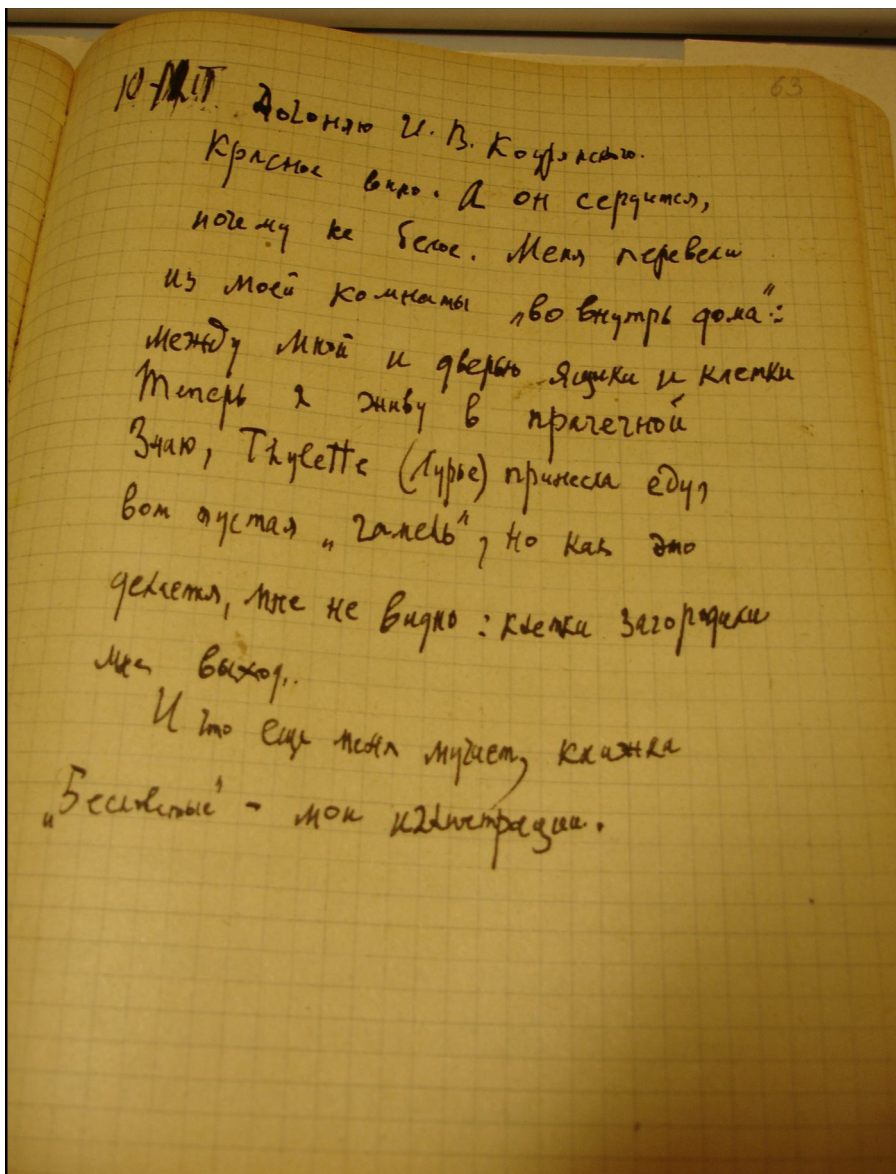 63
Догоняю И. В. Кодрянского.
Красное вино. А он сердится,
почему не белое. Меня перевели
из моей комнаты „во внутрь дома“:
между мной и дверью ящики и клетки
Теперь я живу в прачечной
Знаю, Thylette (Гурье) принесла еду,
вот пустая „гамель“, но как это
делается, мне не видно: клетки загородили
мне выход.
И что еще меня мучает, книжка
„Бесноватые“ – мои иллюстрации.